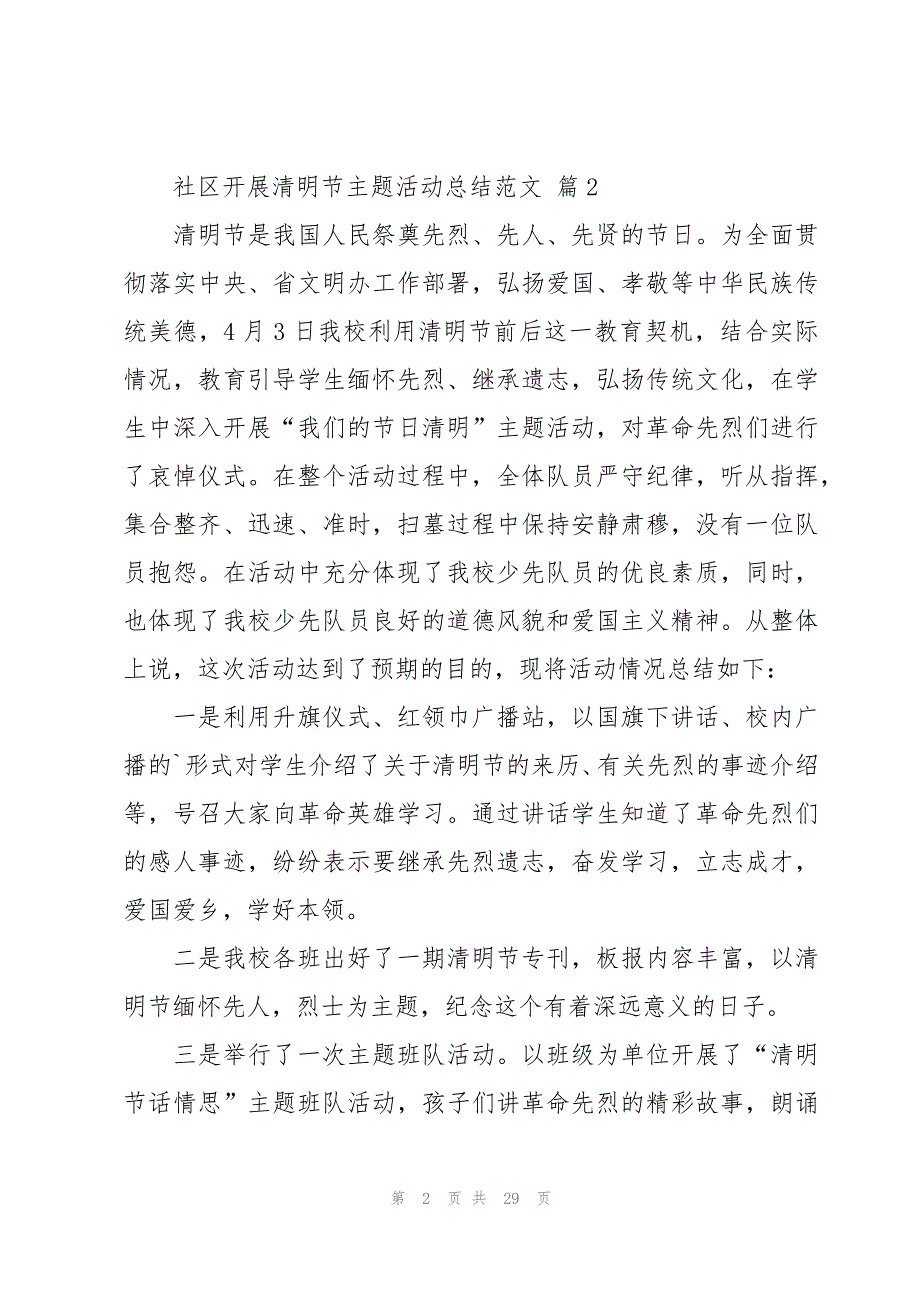 社区开展清明节主题活动总结范文 篇 2
清明节是我国人民祭奠先烈、先人、先贤的节日。为全面贯
彻落实中央、省文明办工作部署，弘扬爱国、孝敬等中华民族传
统美德，4 月 3 日我校利用清明节前后这一教育契机，结合实际
情况，教育引导学生缅怀先烈、继承遗志，弘扬传统文化，在学
生中深入开展“我们的节日清明”主题活动，对革命先烈们进行
了哀悼仪式。在整个活动过程中，全体队员严守纪律，听从指挥，
集合整齐、迅速、准时，扫墓过程中保持安静肃穆，没有一位队
员抱怨。在活动中充分体现了我校少先队员的优良素质，同时，
也体现了我校少先队员良好的道德风貌和爱国主义精神。从整体
上说，这次活动达到了预期的目的，现将活动情况总结如下：
一是利用升旗仪式、红领巾广播站，以国旗下讲话、校内广
播的`形式对学生介绍了关于清明节的来历、有关先烈的事迹介绍
等，号召大家向革命英雄学习。通过讲话学生知道了革命先烈们
的感人事迹，纷纷表示要继承先烈遗志，奋发学习，立志成才，
爱国爱乡，学好本领。
二是我校各班出好了一期清明节专刊，板报内容丰富，以清
明节缅怀先人，烈士为主题，纪念这个有着深远意义的日子。
三是举行了一次主题班队活动。以班级为单位开展了“清明
节话情思”主题班队活动，孩子们讲革命先烈的精彩故事，朗诵
第 2 页 共 29 页